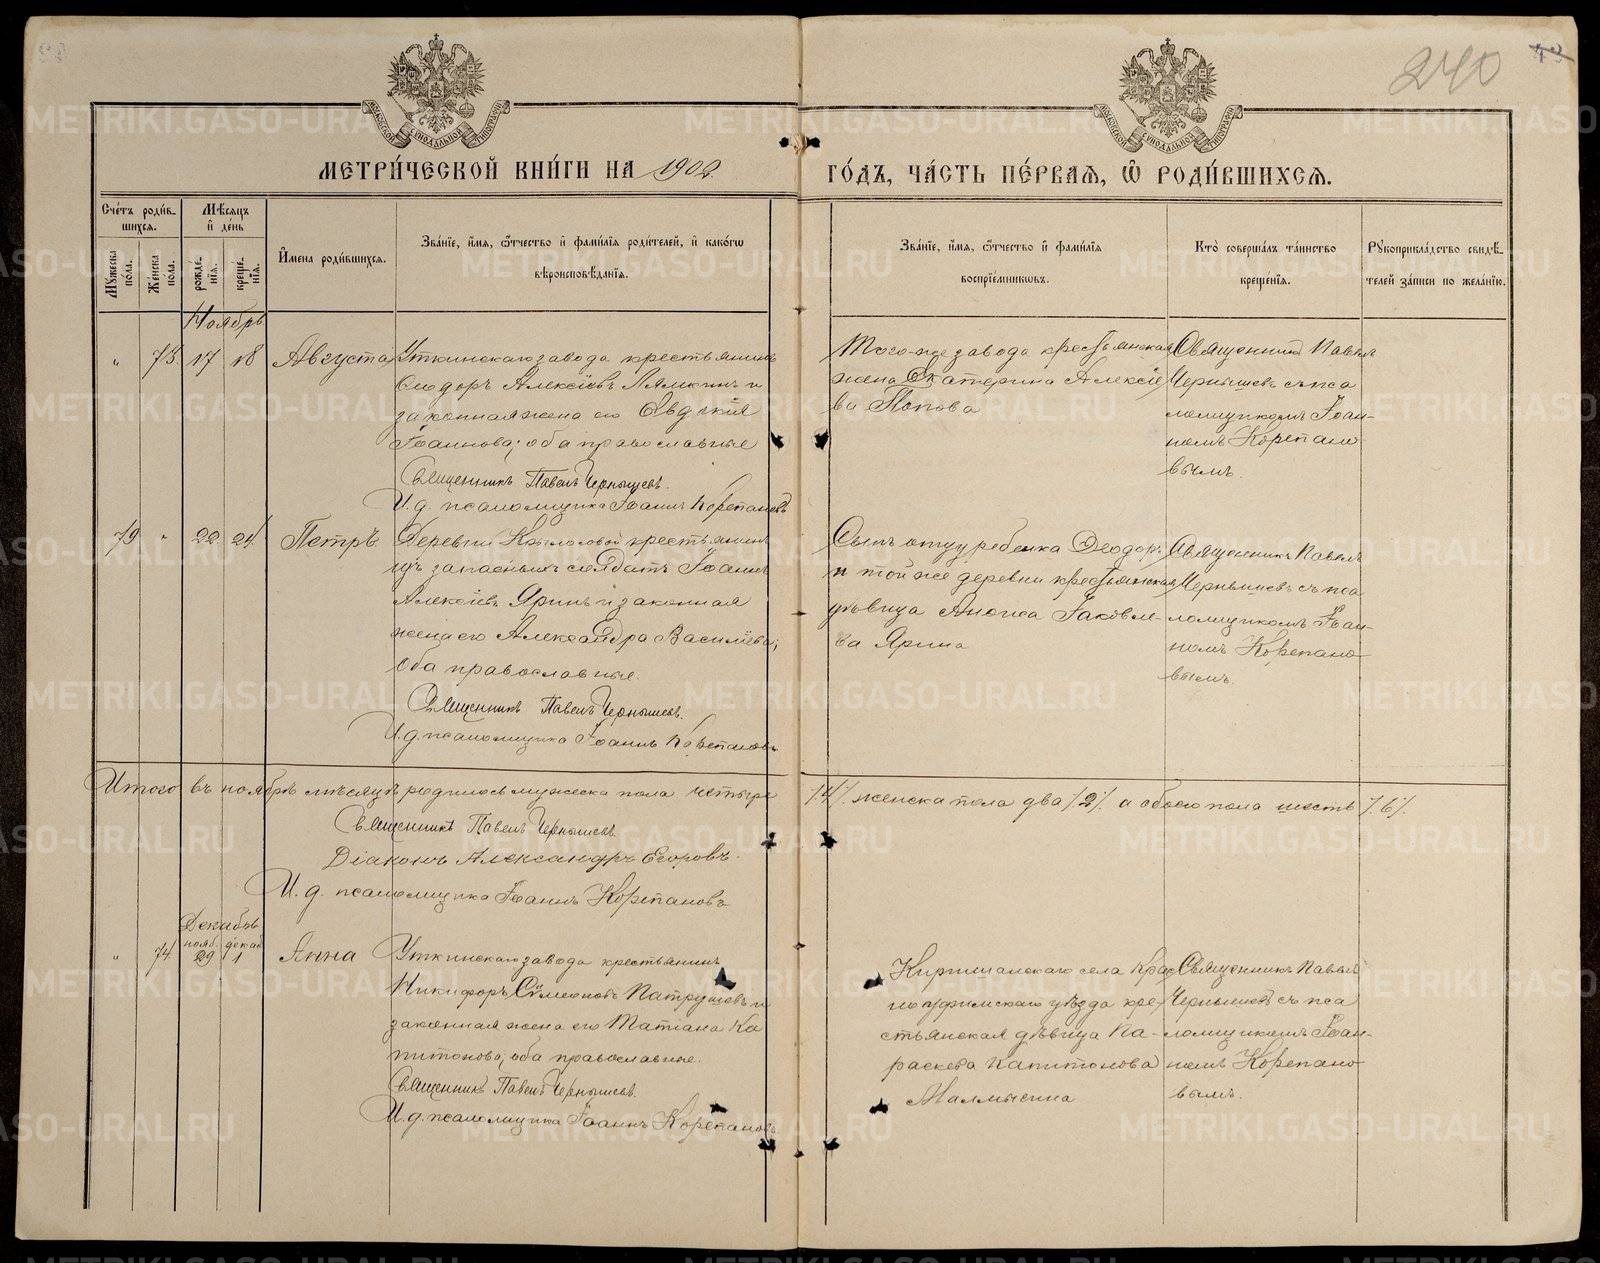 240
43
МОСКОВСКОЙ СУНОДАЛЬНОЙ ТИПОГРАФІИ
МОСКОВСКОЙ СУНОДАЛЬНОЙ ТИПОГРАФІИ
МЕТРИ́ЧЕСКОЙ КНИ́ГИ НА 1902
ГО́ДЪ, ЧА́СТЬ ПЕ́РВАѦ, Ѡ҆ РОДИ́ВШИХСѦ.
Сче́тъ роди́в-
шихсѧ.
Мѣ́сѧцъ
и҆ де́нь
Мꙋ́жеска
по́ла.
Же́нска
по́ла.
рожде́-
нїѧ.
креще́-
нїѧ.
И҆мена роди́вшихсѧ.
Зва́нїе, и҆́мѧ, ѻ҆́тчество и҆ фами́лїѧ роди́телей, и҆ како́гѡ
вѣроисповѣ́данїѧ.
Зва́нїе, и҆́мѧ, ѻ҆́тчество и҆ фами́лїѧ
воспрїе́мникѡвъ.
Кто̀ соверша́лъ та́инство
креще́нїѧ.
Рꙋкоприкла́дство свидѣ́-
телей за́писи по жела́нїю.
Ноябрь
" 73 17 18 Августа
Уткинскаго завода крестьянинъ
Ѳеодоръ Алексіевъ Лямкинъ и
законная жена его Евдокія
Іоаннова; оба православные
Священникъ Павелъ Чернышевъ.
И. д. псаломщика Іоаннъ Корепановъ
Того-же завода крестьянская
жена Екатерина Алексіе-
ва Попова
Священникъ Павелъ
Чернышевъ съ пса
ломщикомъ Іоан-
номъ Корепано-
вымъ.
79 " 22 24 Петръ
Деревни Крыласовой крестьянинъ
изъ запасныхъ солдатъ Іоаннъ
Алексіевъ Яринъ и законная
жена его Александра Василіева;
оба православные.
Священникъ Павелъ Чернышевъ.
И. д. псаломщика Іоаннъ Корепановъ
Сынъ отцу ребенка Ѳеодоръ
и той же деревни крестьянская
дѣвица Анна Іаковле-
ва Ярина
Священникъ Павелъ
Чернышевъ съ пса
ломщикомъ Іоан-
номъ Корепано-
вымъ.
Итого въ ноябрѣ мѣсяцѣ родилось мужеска пола четыре /4/ женска пола два /2/ а обоего пола шесть /6/.
Священникъ Павелъ Чернышевъ.
Діаконъ Александръ Егоровъ.
И. д. псаломщика Іоаннъ Корепановъ
Декабрь
нояб. декаб
" 74 29 1 Анна
Уткинскаго завода крестьянинъ
Никифоръ Сѵмеоновъ Патрушевъ и
законная жена его Татіана Ка
питонова; оба православные.
Священникъ Павелъ Чернышевъ.
И. д. псаломщика Іоаннъ Корепановъ.
Киргишанскаго села Крас-
ноуфимскаго уѣзда кре-
стьянская дѣвица Па-
раскева Капитонова
Малмыгина
Священникъ Павелъ
Чернышевъ съ пса
ломщикомъ Іоан-
номъ Корепано-
вымъ.
METRIKI.GASO-URAL.RU